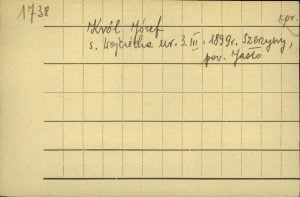 1738
kpr.
Król Józef
s. Wojciecha ur. 3.III.1899r. Szerzyny,
pow. Jasło